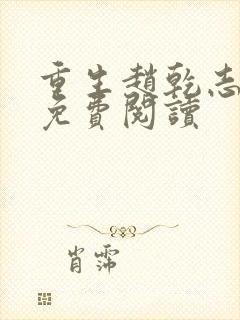 重生趙乾志
免費閱讀
肖霈